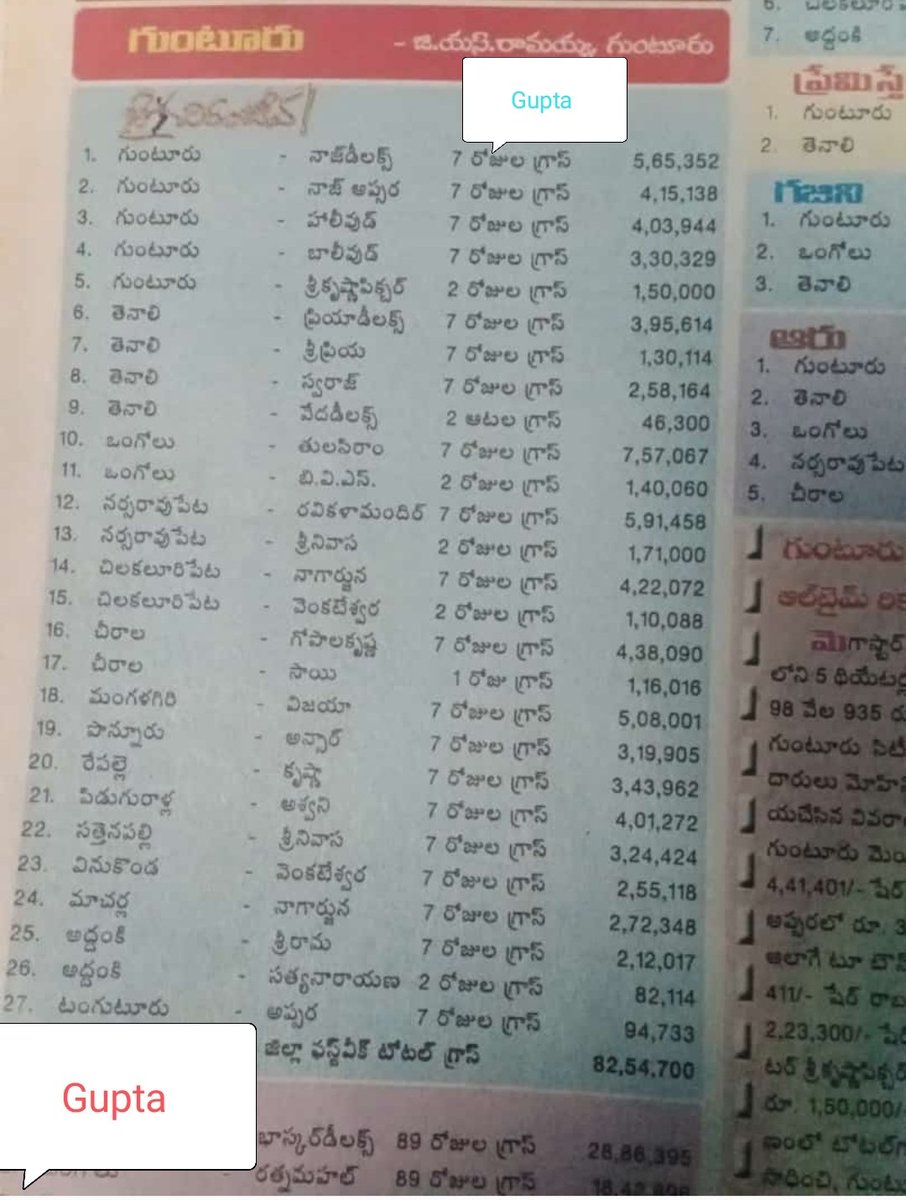 గుంటూరు - జి.యస్.రామయ్య, గుంటూరు
Gupta
జై చిరంజీవ!
1. గుంటూరు - నాజ్‌డీలక్స్ 7 రోజుల గ్రాస్ 5,65,352
2. గుంటూరు - నాజ్ అప్సర 7 రోజుల గ్రాస్ 4,15,138
3. గుంటూరు - హాలీవుడ్ 7 రోజుల గ్రాస్ 4,03,944
4. గుంటూరు - బాలీవుడ్ 7 రోజుల గ్రాస్ 3,30,329
5. గుంటూరు - శ్రీకృష్ణాపిక్చర్ 2 రోజుల గ్రాస్ 1,50,000
6. తెనాలి - ప్రియాడీలక్స్ 7 రోజుల గ్రాస్ 3,95,614
7. తెనాలి - శ్రీప్రియ 7 రోజుల గ్రాస్ 1,30,114
8. తెనాలి - స్వరాజ్ 7 రోజుల గ్రాస్ 2,58,164
9. తెనాలి - వేదడీలక్స్ 2 ఆటల గ్రాస్ 46,300
10. ఒంగోలు - తులసిరాం 7 రోజుల గ్రాస్ 7,57,067
11. ఒంగోలు - బి.వి.ఎస్. 2 రోజుల గ్రాస్ 1,40,060
12. నర్సరావుపేట - రవికళామందిర్ 7 రోజుల గ్రాస్ 5,91,458
13. నర్సరావుపేట - శ్రీనివాస 2 రోజుల గ్రాస్ 1,71,000
14. చిలకలూరిపేట - నాగార్జున 7 రోజుల గ్రాస్ 4,22,072
15. చిలకలూరిపేట - వెంకటేశ్వర 2 రోజుల గ్రాస్ 1,10,088
16. చీరాల - గోపాలకృష్ణ 7 రోజుల గ్రాస్ 4,38,090
17. చీరాల - సాయి 1 రోజు గ్రాస్ 1,16,016
18. మంగళగిరి - విజయా 7 రోజుల గ్రాస్ 5,08,001
19. పొన్నూరు - అన్సార్ 7 రోజుల గ్రాస్ 3,19,905
20. రేపల్లె - కృష్ణా 7 రోజుల గ్రాస్ 3,43,962
21. పిడుగురాళ్ల - అశ్వని 7 రోజుల గ్రాస్ 4,01,272
22. సత్తెనపల్లి - శ్రీనివాస 7 రోజుల గ్రాస్ 3,24,424
23. వినుకొండ - వెంకటేశ్వర 7 రోజుల గ్రాస్ 2,55,118
24. మాచర్ల - నాగార్జున 7 రోజుల గ్రాస్ 2,72,348
25. అద్దంకి - శ్రీరామ 7 రోజుల గ్రాస్ 2,12,017
26. అద్దంకి - సత్యనారాయణ 2 రోజుల గ్రాస్ 82,114
27. టంగుటూరు - అప్సర 7 రోజుల గ్రాస్ 94,733
జిల్లా ఫస్ట్‌వీక్ టోటల్ గ్రాస్ 82,54,700
Gupta
భాస్కర్‌డీలక్స్ 89 రోజుల గ్రాస్ 28,86,395
- రత్నమహల్ 89 రోజుల గ్రాస్
7. అద్దంకి
ప్రేమిస్తే
1. గుంటూరు
2. తెనాలి
గజిని
1. గుంటూరు
2. ఒంగోలు
3. తెనాలి
ఆరు
1. గుంటూరు
2. తెనాలి
3. ఒంగోలు
4. నర్సరావుపేట
5. చీరాల
గుంటూరు
ఆల్‌టైమ్ రిక
మెగాస్టార్
లోని 5 థియేటర్ల
98 వేల 935 రు
గుంటూరు సిటీ
దారులు మోహ
యచేసిన వివరా
గుంటూరు మొ
4,41,401/- షేర్
అప్సరలో రూ. 3
అలాగే టూ టౌన్
411/- షేర్ రాబ
2,23,300/- షేర్
టర్ శ్రీకృష్ణాపిక్చర్
రూ. 1,50,000/-
ఐంలో టోటల్‌గా
సాధించి, గుంటు